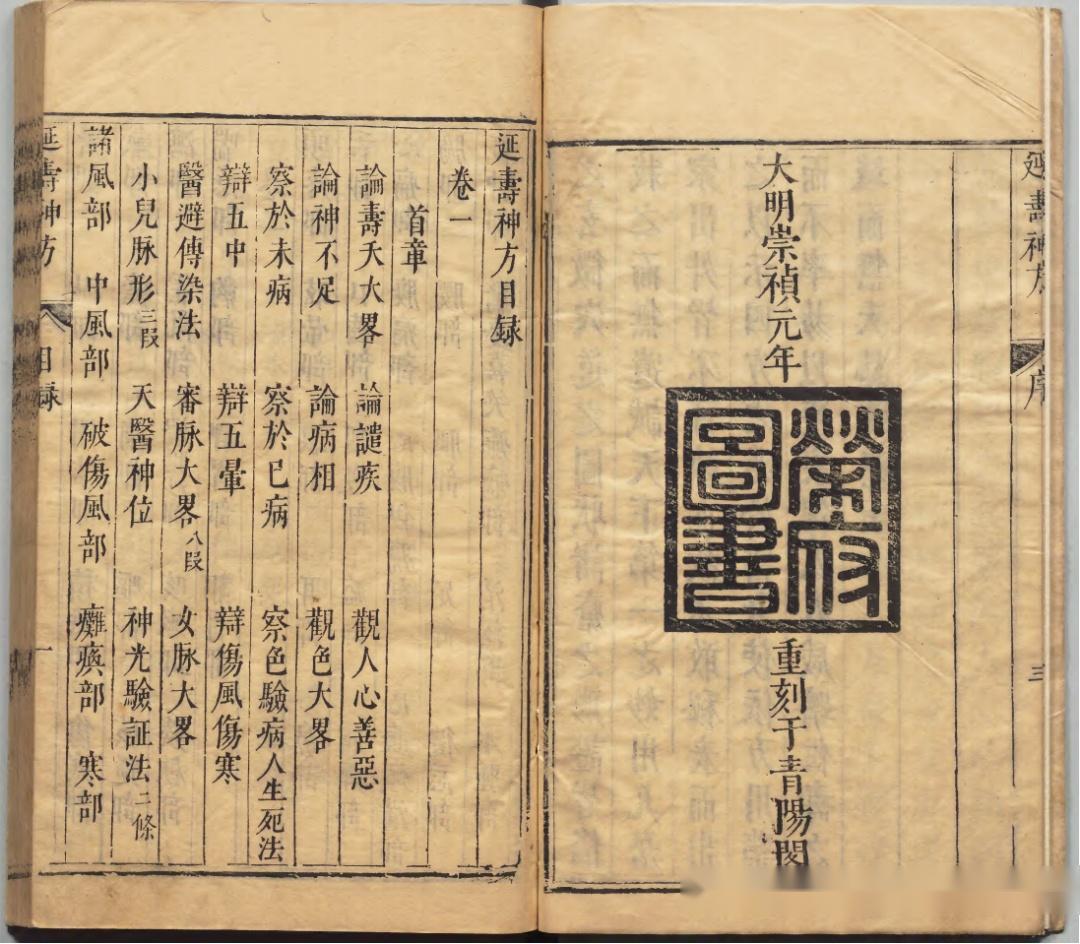 延壽神方
序
三
大明崇禎元年
榮府圖書
重刻于青陽閣
延壽神方目録
卷一
首章
論壽夭大畧 論譴疾 觀人心善惡
論神不足 論病相 觀色大畧
察於未病 察於已病 察色驗病人生死法
辯五中 辯五暈 辯傷風傷寒
醫避傳染法 審脉大畧八段 女脉大畧
小兒脉形三段 天醫神位 神光驗証法二條
諸風部 中風部 破傷風部 癱瘓部 寒部
延壽神方
目録
一